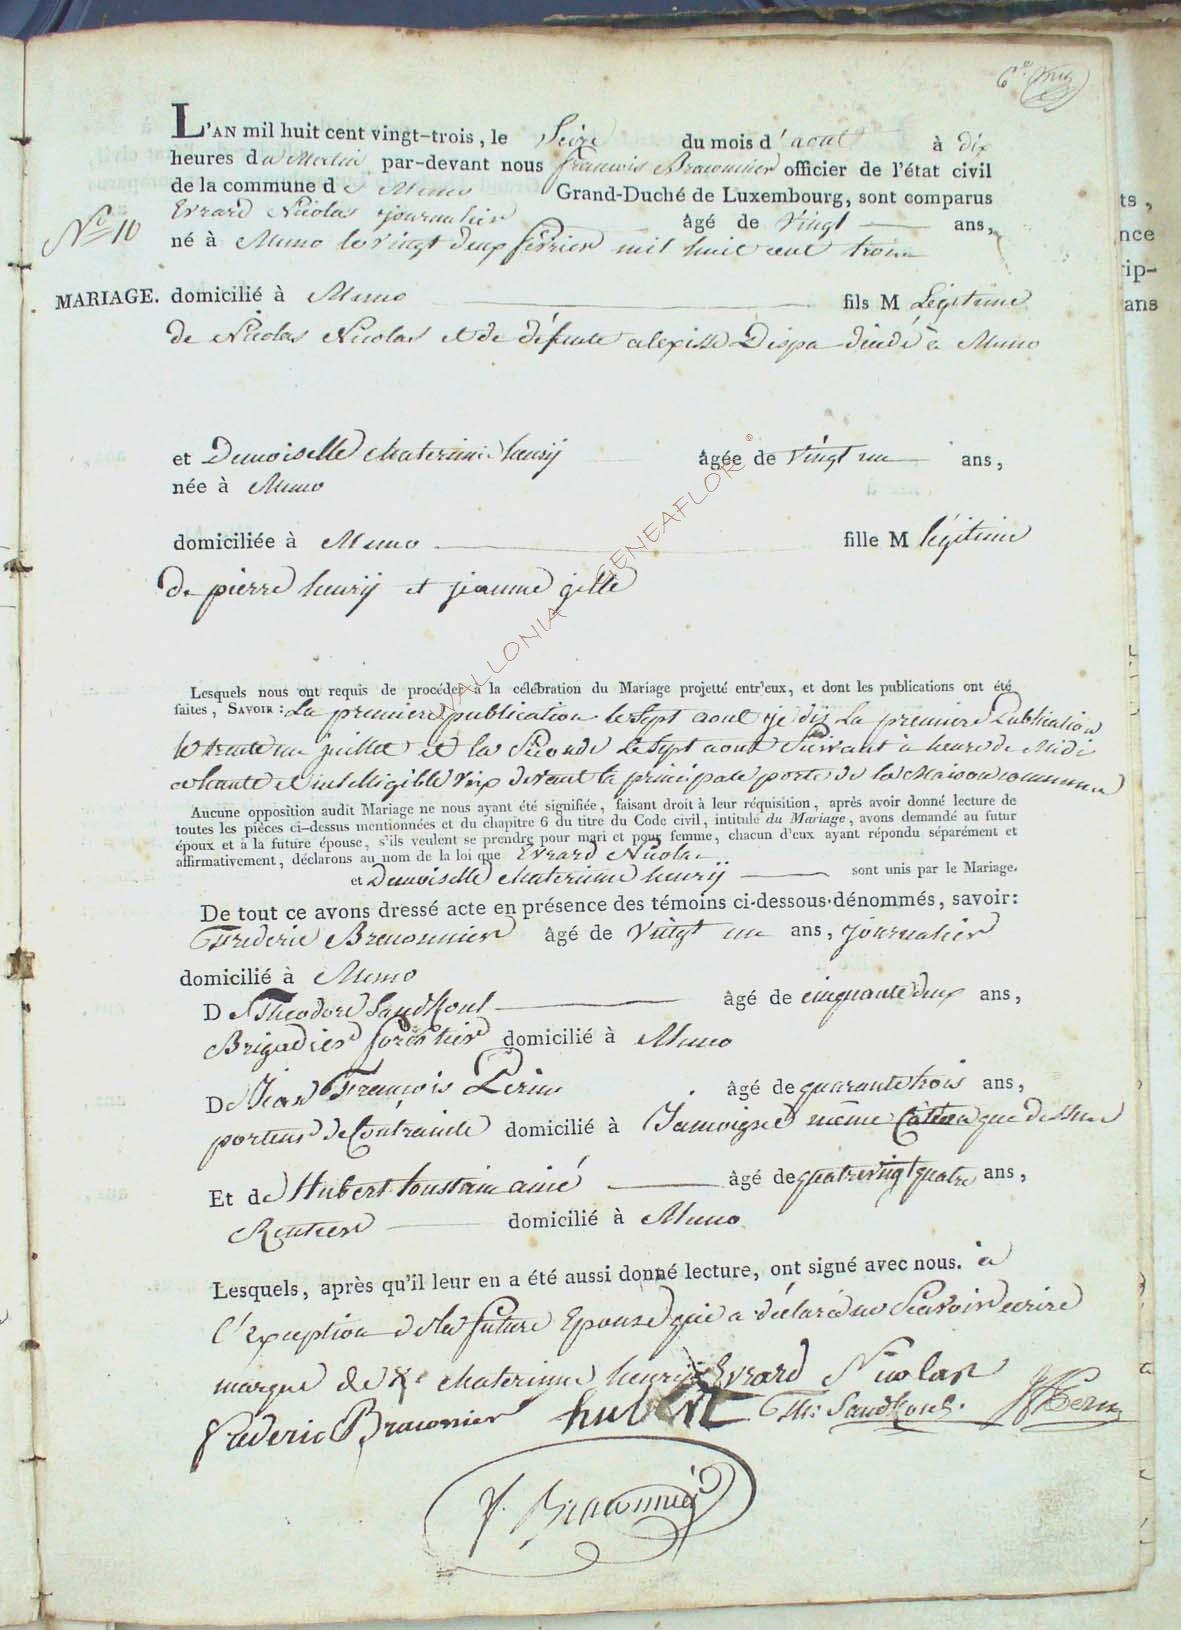 L'AN mil huit cent vingt-trois, le Seize du mois d'aout à dix
heures du Matin par-devant nous francois Braconnier officier de l'état civil
de la commune de Muno Grand-Duché de Luxembourg, sont comparus
Evrard Nicolas journalier âgé de vingt ans,
N° 10
né à Muno le vingt deux février mil huit cent trois
MARIAGE. domicilié à Muno fils M Légitime
de Nicolas Nicolas et de défunte alexisse Dispa décédé à Muno
et Demoiselle Catherinne henrij âgée de Vingt un ans,
née à Muno
domiciliée à Muno fille M légitime
de pierre henrij et jeanne gille
Lesquels nous ont requis de procéder à la célébration du Mariage projetté entr'eux, et dont les publications ont été
faites, SAVOIR : La premiere publication le sept aout je dis La premiere Publication
le trente un juillet et la Séconde le sept aout Suivant à heure de Midi
a haute et intelligible voix devant la principale porte de la Maison commune
Aucune opposition audit Mariage ne nous ayant été signifiée, faisant droit à leur réquisition, après avoir donné lecture de
toutes les pièces ci-dessus mentionnées et du chapitre 6 du titre du Code civil, intitulé du Mariage, avons demandé au futur
époux et à la future épouse, s'ils veulent se prendre pour mari et pour femme, chacun d'eux ayant répondu séparément et
affirmativement, déclarons au nom de la loi que Evrard Nicolas
et Demoiselle Catherinne henrij sont unis par le Mariage.
De tout ce avons dressé acte en présence des témoins ci-dessous dénommés, savoir :
Frederic Braconnier âgé de Vingt un ans, journalier
domicilié à Muno
De Theodore Sandkoul âgé de cinquante deux ans,
Brigadier forestier domicilié à Muno
De Jean François Perin âgé de quarante trois ans,
porteur de Contrainte domicilié à Jamoigne même Canton que dessus
Et de Hubert toussain ainé âgé de quatre vingt quatre ans,
Rentier domicilié à Muno
Lesquels, après qu'il leur en a été aussi donné lecture, ont signé avec nous. à
l'Exception de la future Epouse qui a déclaré ne Scavoir écrire
marque de X Catherinne henrij Evrard Nicolas
fraderic Braconier hubert Th: Sandkoul. Perin
f. Braconnier
WALLONIA GENEAFLOR ©